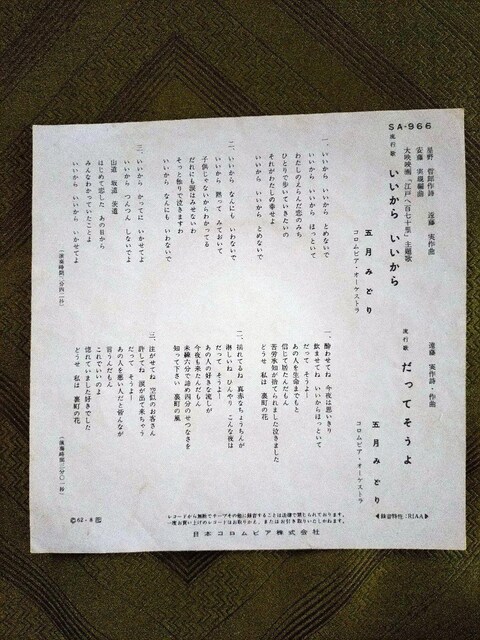 SA-966
星野 哲郎作詩 遠藤 実作曲
安藤 実親編曲
大映映画「江戸へ百七十里」主題歌
流行歌 いいから いいから
五月みどり
コロムビア・オーケストラ
一、いいから いいから とめないで
いいから いいから ほっといて
わたしのえらんだ恋のみち
ひとりで歩いていきたいの
それがわたしの幸せよ
いいから いいから とめないで
二、いいから なんにも いわないで
いいから 黙って みておいて
子供じゃないからわかってる
だれにも涙はみせないわ
そっと独りで泣きますわ
いいから なんにも いわないで
三、いいから かってに いかせてよ
いいから つんつん しないでよ
山道 坂道 茨道
はじめて恋した あの日から
みんなわかっていたことよ
いいから いいから いかせてよ
(演奏時間二分四一秒)
遠藤 実作詩・作曲
流行歌 だってそうよ
五月みどり
コロムビア・オーケストラ
一、酔わせてね 今夜は思いきり
飲ませてね いいからほっといて
だって そうよ
あの人を生命までもと
信じて居たんだもん
苦労承知が捨てられました泣きました
どうせ 私は 裏町の花
二、揺れてるね 真赤なちょうちんが
淋しいね ひんやり こんな夜は
だって そうよ
あの人の好きな流しが
今夜も来んだもん
未練六分で諦め四分のせつなさを
知って下さい 裏町の風
三、注がせてね 空似のお客さん
許してね 涙が出て来ちゃう
だって そうよ
あの人を悪い人だと皆んなが
言うんだもん
これでいいのよ
惚れていました好きでした
どうせ 私は 裏町の花
(演奏時間三分〇一秒)
◀録音特性:RIAA▶
レコードから無断でテープその他に録音することは法律で禁じられております。
一度お買い上げのレコードはお取りかえ、またはお引き取りいたしかねます。
日本コロムビア株式会社
Ⓒ62・8